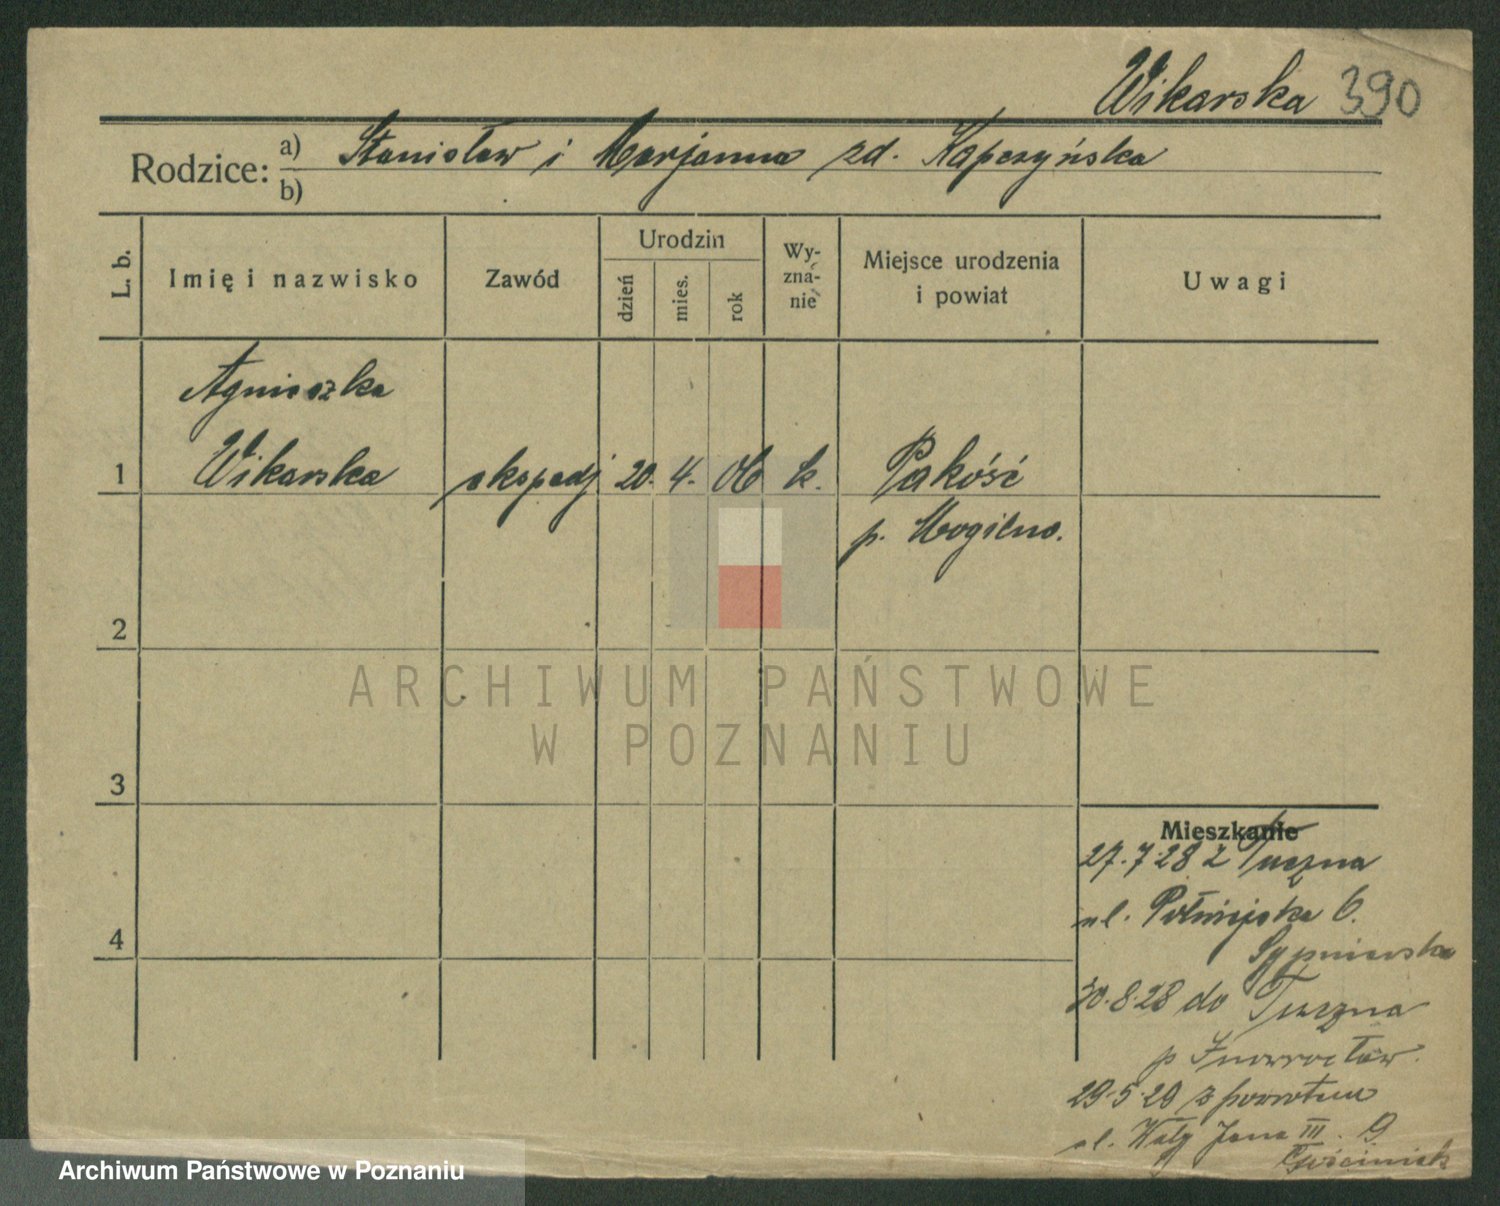 Wikarska 390
Rodzice: a) Stanisław i Marjanna zd. Kapczyńska
b)
L. b.
Imię i nazwisko
Zawód
Urodzin
dzień
mies.
rok
Wy-
zna-
nie
Miejsce urodzenia
i powiat
Uwagi
Agnieszka
1 Wikarska ekspedj 20. 4. 06 k. Pakość
p. Mogilno.
2
ARCHIWUM PAŃSTWOWE
W POZNANIU
3
Mieszkanie
27.7.28 z Tuczna
ul. Półwiejska 6.
4
Sypniewska
30.8.28 do Tuczna
p Inowrocław.
29.5.29 z powrotem
ul. Wały Jana III. 9
Gościniak
Archiwum Państwowe w Poznaniu